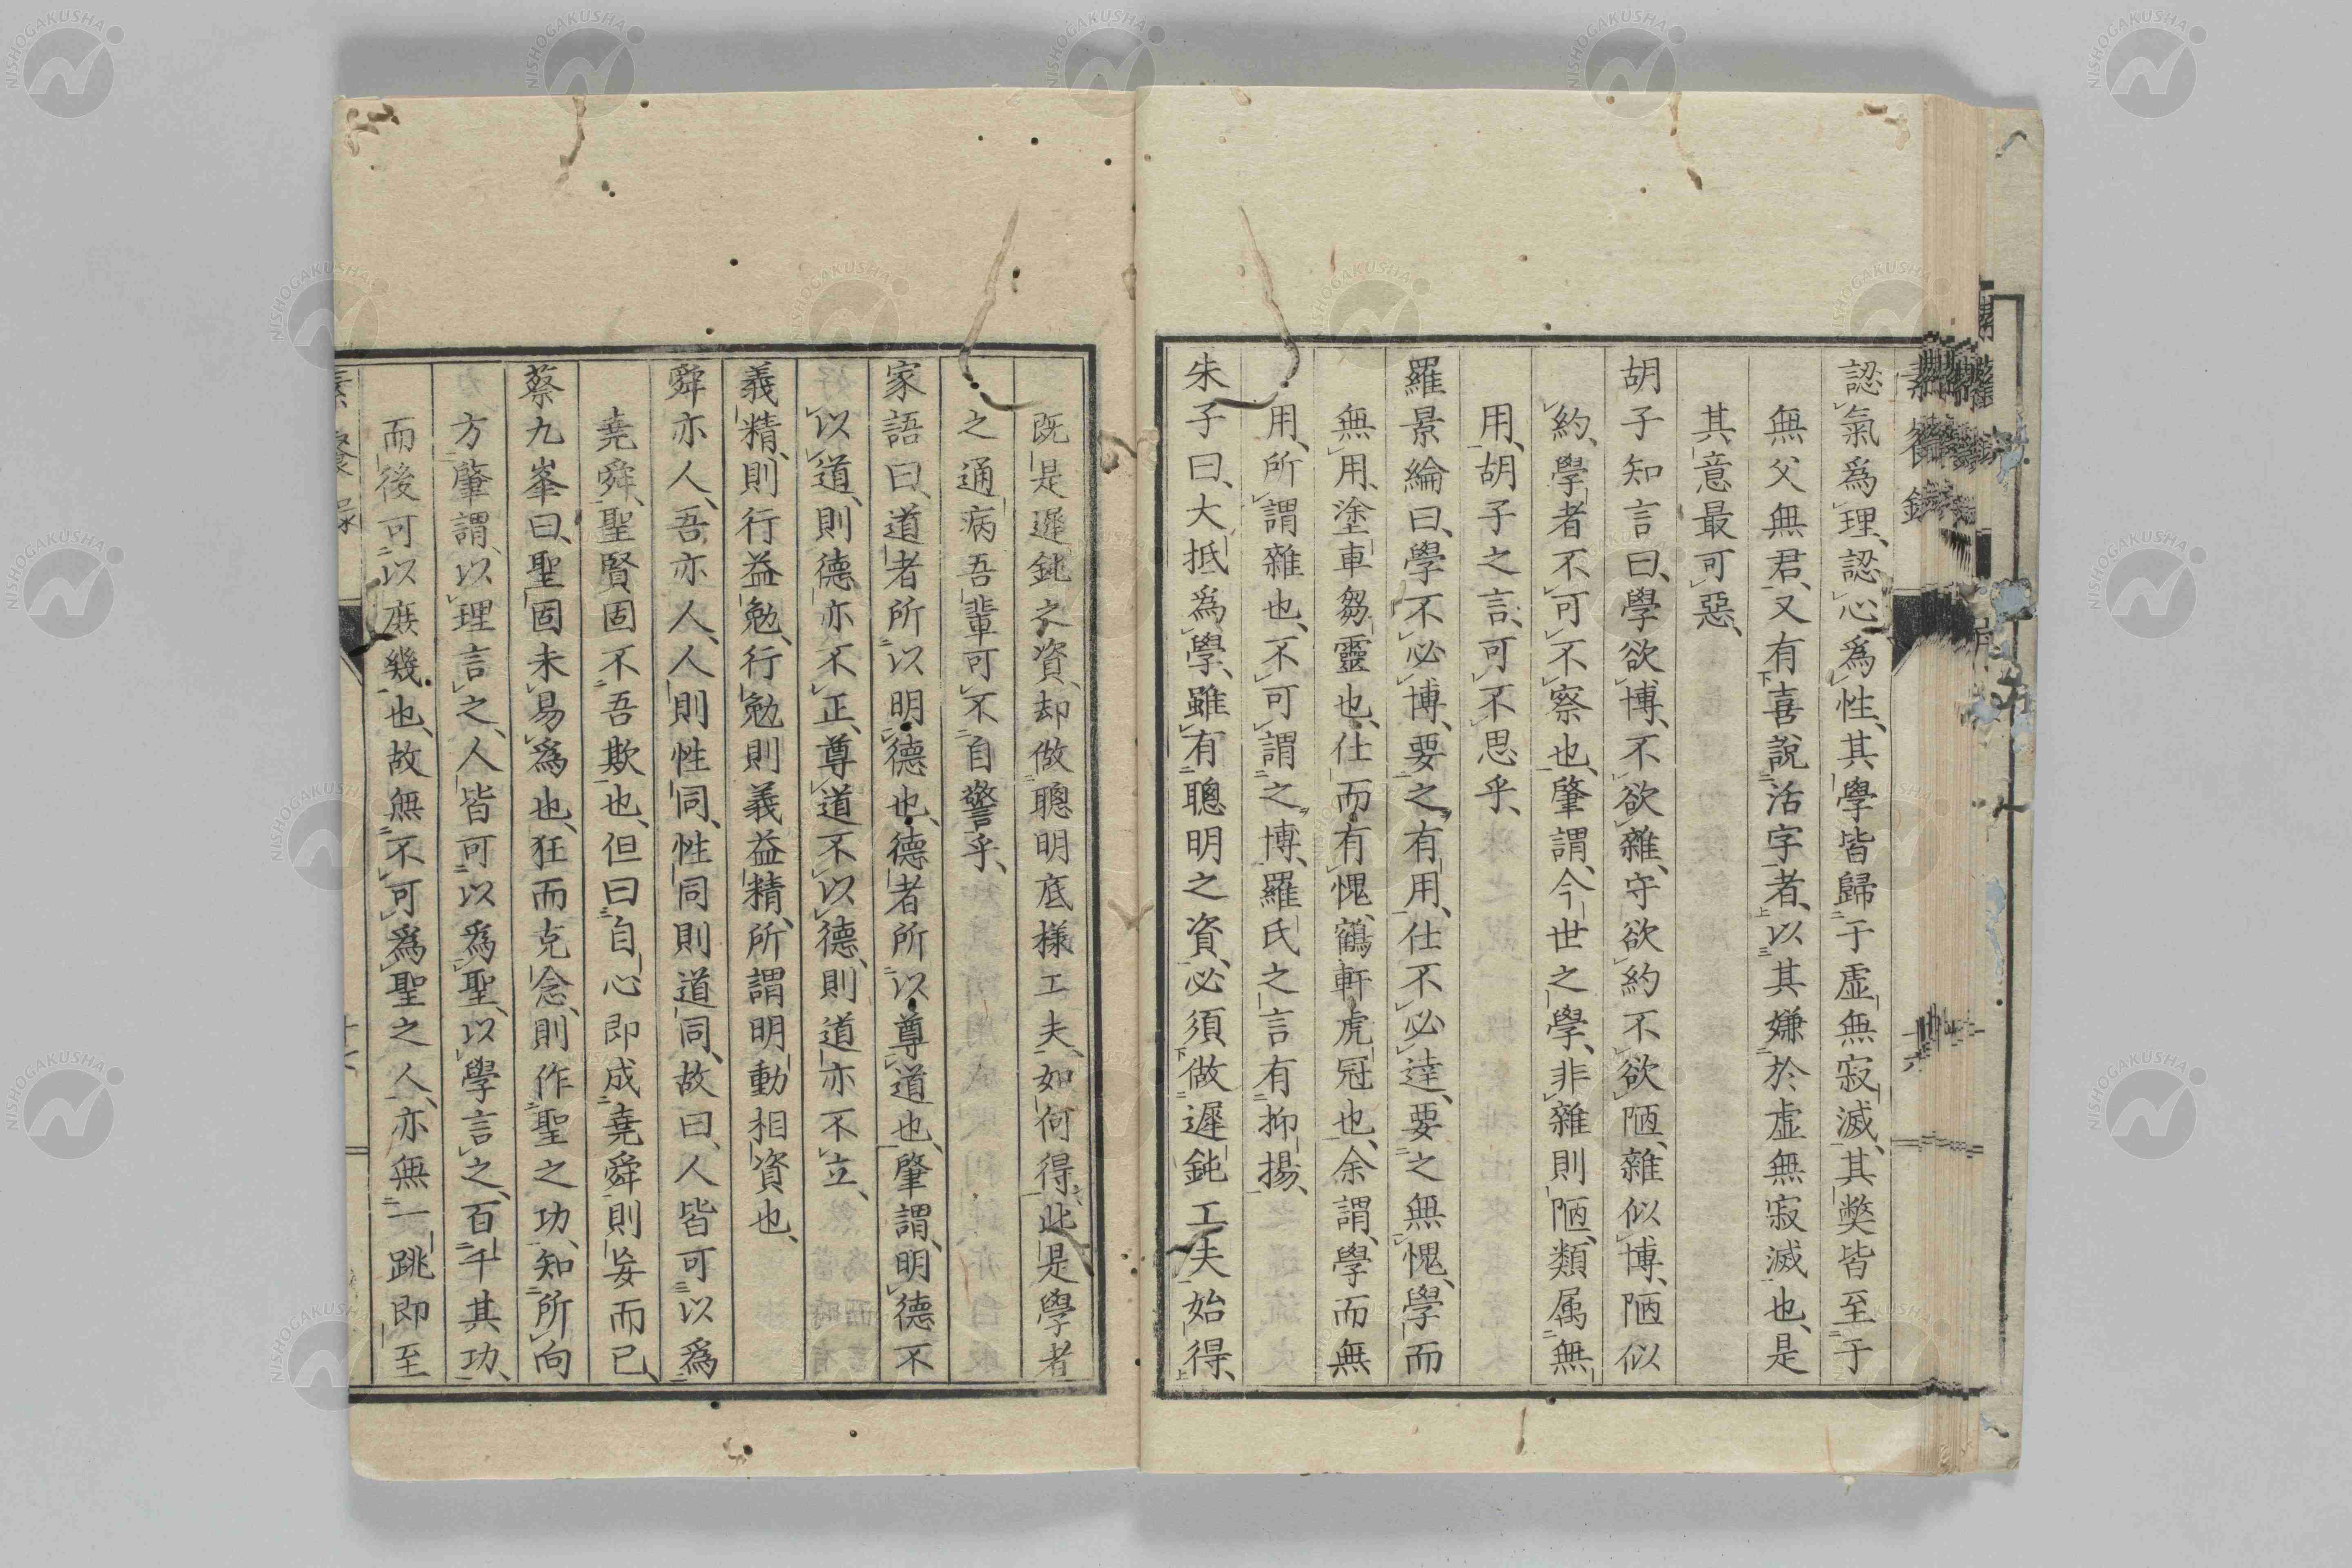 認氣爲理、認心爲性、其學皆歸于虛無寂滅、其弊皆至于
無父無君、又有喜說活字者、以其嫌於虛無寂滅也、是
其意最可惡、
胡子知言曰、學欲博、不欲雜、守欲約不欲陋、雜似博、陋似
約、學者不可不察也、肇謂、今世之學、非雜則陋、類属無
用、胡子之言、可不思乎、
羅景綸曰、學不必博、要之有用、仕不必達、要之無愧、學而
無用、塗車芻靈也、仕而有愧、鶴軒虎冠也、余謂、學而無
用、所謂雜也、不可謂之博、羅氏之言有抑揚、
朱子曰、大抵爲學、雖有聰明之資、必須做遲鈍工夫、始得、
既是遲鈍之資、却做聰明底樣工夫、如何得、此是學者
之通病吾輩可不自警乎、
家語曰、道者所以明德也、德者所以尊道也、肇謂、明德不
以道、則德亦不正、尊道不以德、則道亦不立、
義精、則行益勉、行勉則義益精、所謂明動相資也、
舜亦人、吾亦人、人則性同、性同則道同、故曰、人皆可以爲
堯舜、聖賢固不吾欺也、但曰自心即成堯舜則妄而已、
蔡九峯曰、聖固未易爲也、狂而克念、則作聖之功、知所向
方、肇謂、以理言之、人皆可以爲聖、以學言之、百千其功、
而後可以庶幾也、故無不可爲聖之人、亦無一跳即至